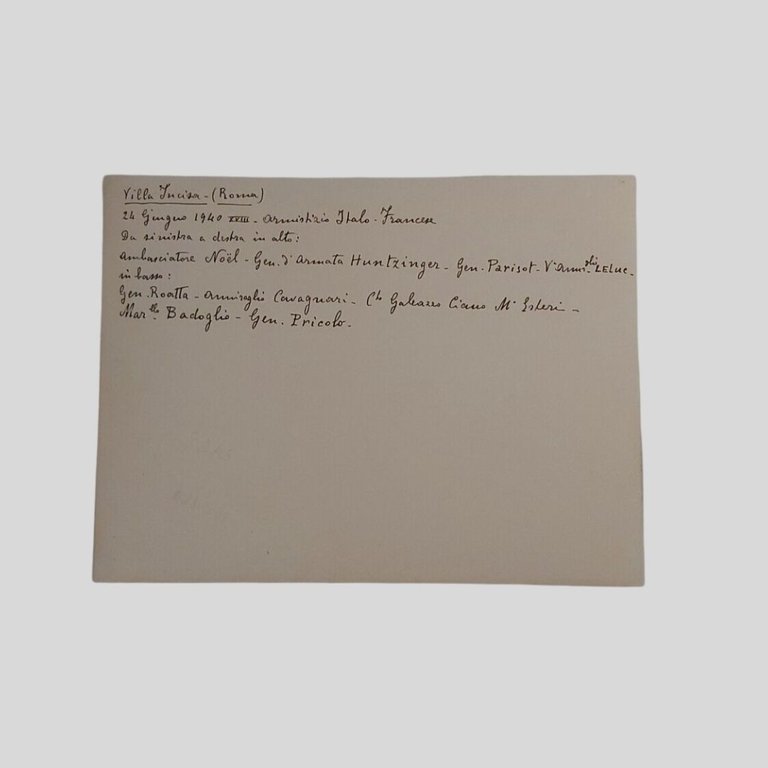 Villa Incisa - (Roma)
24 Giugno 1940 XVIII - Armistizio Italo - Francese
Da sinistra a destra in alto:
Ambasciatore Noël - Gen. d'Armata Huntzinger - Gen. Parisot - V. Ammi.glio LELUC -
in basso:
Gen. Roatta - Ammiraglio Cavagnari - C.te Galeazzo Ciano M. Esteri -
Mar.llo Badoglio - Gen. Pricolo.